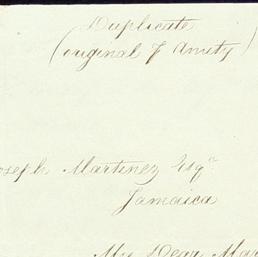 Duplicate
(original p Amity)
oseph Martinez Esqr
Jamaica
My Dear Mar